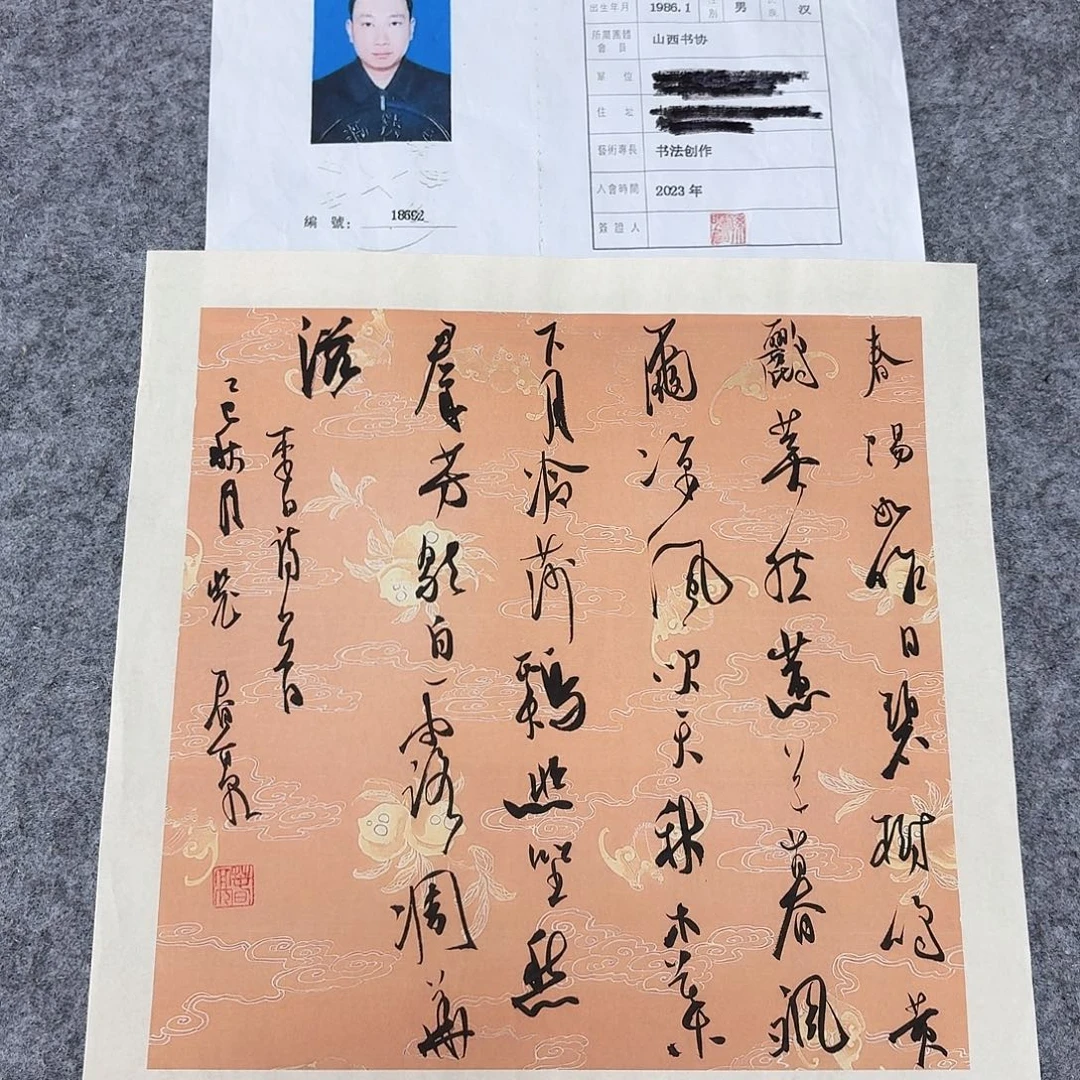 出生年月 1986.1 性別 男 民族 汉
所屬團體會員 山西书协
單位
住址
藝術專長 书法创作
入會時間 2023年
簽證人
編號: 18692
春陽如昨日碧樹鳴黄
鸝蕪然蕙草暮颯
爾凉風吹天秋木葉
下月冷莎鷄悲坐愁
群芳歇白露凋華
滋
李白詩一首
乙巳秋月